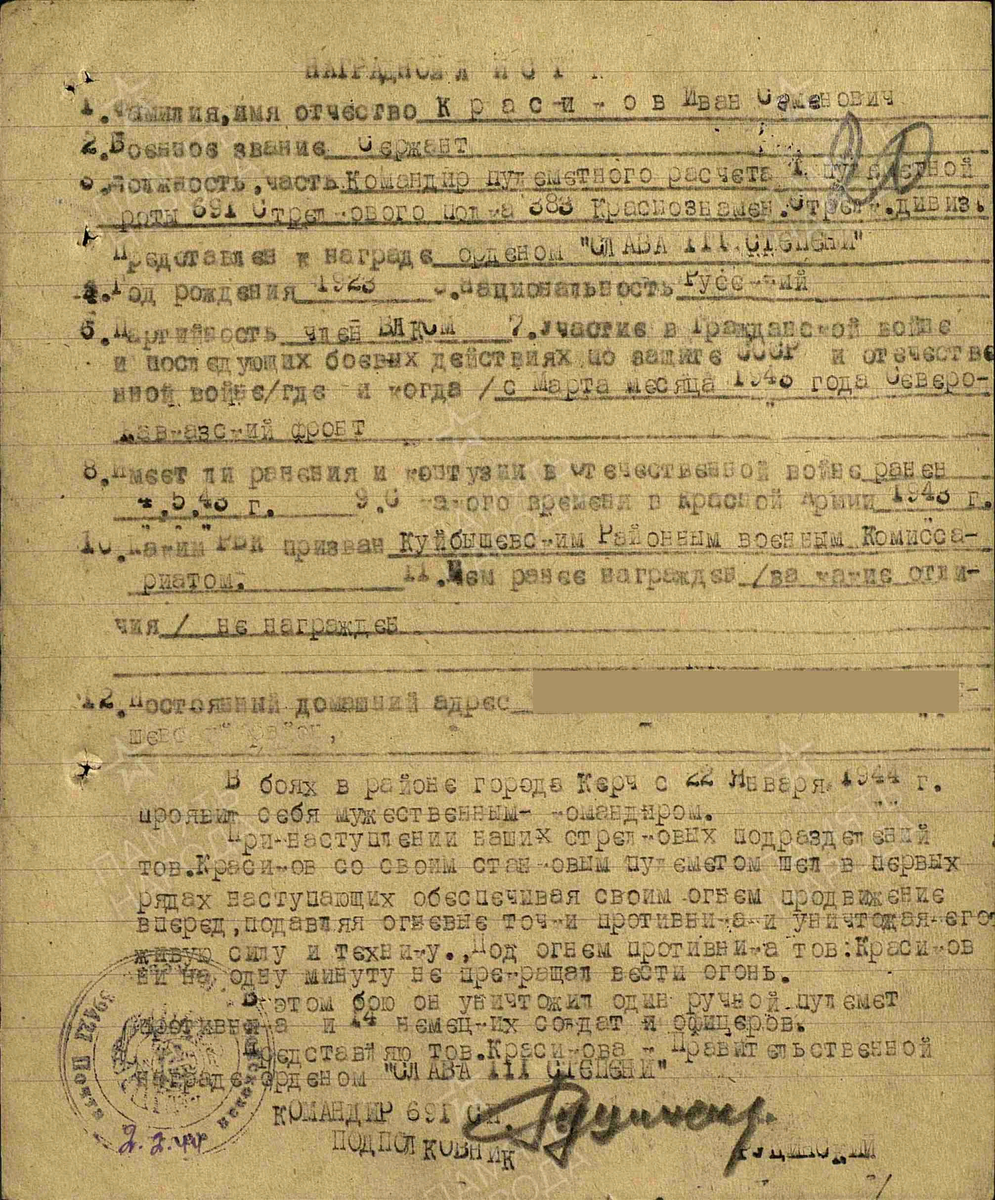 НАГРАДНОЙ ЛИСТ
1. Фамилия, имя отчество Красиков Иван Семенович
2. Военное звание Сержант
3. Должность, часть Командир пулеметного расчета 1 пулеметной
роты 691 Стрелкового полка 383 Краснознамен. Стрелк. дивиз.
Представлен к награде орденом "СЛАВА III СТЕПЕНИ"
4. Год рождения 1923 5. Национальность Русский
6. Партийность член ВЛКСМ 7. Участие в Гражданской войне
и последующих боевых действиях по защите СССР и отечестве
нной войне /где и когда/ с Марта месяца 1943 года Северо-
Кавказский фронт
8. Имеет ли ранения и контузии в отечественной войне ранен
4.5.43 г. 9. С какого времени в Красной Армии 1943 г.
10. Каким РВК призван Куйбышевским Районным военным Комисса-
риатом. 11. Чем ранее награжден /за какие отли-
чия/ не награжден
12. Постоянный домашний адрес
шевский район,
В боях в районе города Керч с 22 Января 1944 г.
проявил себя мужественным командиром.
При наступлении наших стрелковых подразделений
тов. Красиков со своим станковым пулеметом шел в первых
рядах наступающих обеспечивая своим огнем продвижение
вперед, подавляя огневые точки противника и уничтожая его
живую силу и технику., Под огнем противника тов: Красиков
ни на одну минуту не прекращал вести огонь.
В этом бою он уничтожил один ручной пулемет
противника и 14 немецких солдат и офицеров.
Представляю тов. Красикова к Правительственной
награде орденом "СЛАВА III СТЕПЕНИ"
КОМАНДИР 691 СП
ПОДПОЛКОВНИК РУДИНСКИЙ
2.2.44
20